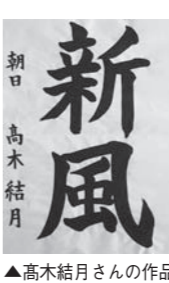 新風
朝日 髙木結月
▲髙木結月さんの作品